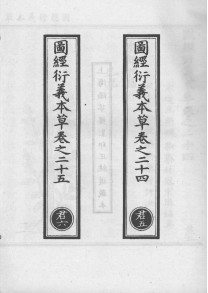 圖經衍義本草卷之二十四
君五
圖經衍義本草卷之二十五
君六